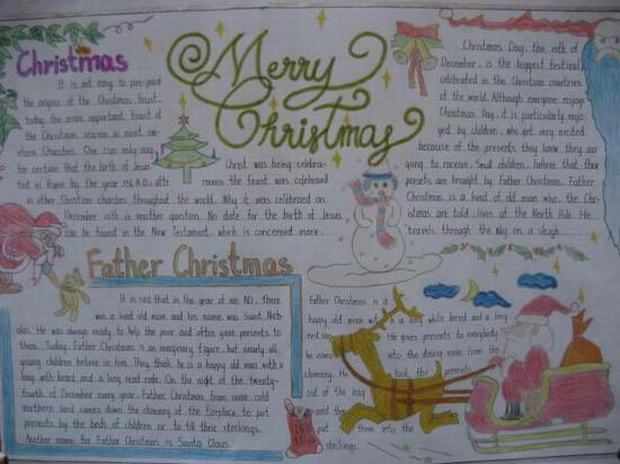 Merry
Christmas
Christmas
It is not easy to pin-point
the origins of the Christmas feast,
today the most important feast of
the Christmas season in most
Churches. One can only say
for certain that the birth of Jesus
Christ was being celebra-
ted in Rome by the year
rance the feast was celebrated
in other Christian churches throughout the world. Why it was celebrated on
December with is another question. No date for the birth of Jesus
can be found in the New Testament, which is concerned more
Christmas Day, the
December, is the biggest festival
celebrated in the Christian countries
of the world. Although everyone enjoys
Christmas Day, it is particularly enjo
yed by children, who get very excited
because of the presents they know they are
going to receive. Small children that their
presents are brought by Father Christmas. Father
Christmas is a kind of old man who, the Chri-
stmas are told, lives at the North Pole. He
travels through the sky on a sleigh
Father Christmas
It is said that in the year of 300 AD. There
was a kind old man and his name was Saint Nich-
olas. He was always ready to help the poor and often gave presents to
them. Today, Father Christmas is an imaginary figure, but nearly all
young children believe in him. They think he is a happy old man with a
long with beard and a long red robe. On the night of the twenty-
fourth of December every year, Father Christmas from some cold
northern land comes down the chimney of the fireplace to put
presents by the beds of children or to fill their stockings.
Another name for Father Christmas is Santa Claus.
Father Christmas is a
happy old man with a long white beard and a long
red He gives presents to everybody
he comes into the dining room from the
chimney. He took the presents
out of the bag
and the
put them into the
stockings.